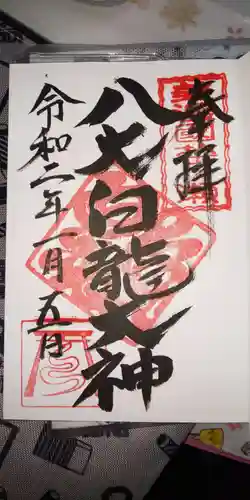 奉拝
八大白龍大神
令和二年一月五日